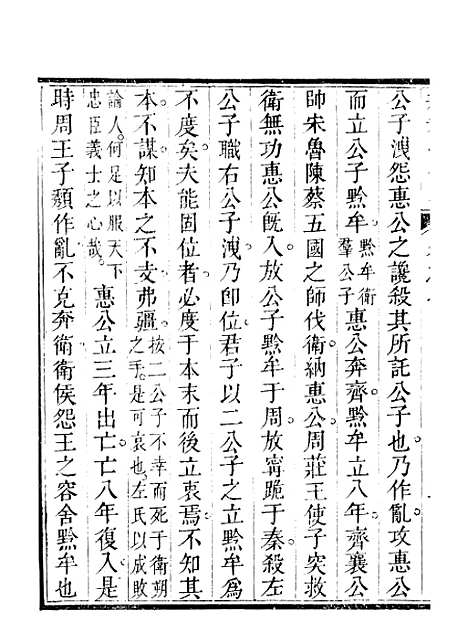 公子洩怨惠公之讒殺其所託公子也乃作亂攻惠公
而立公子黔牟黔牟衛羣公子惠公奔齊黔牟立八年齊襄公
帥宋魯陳蔡五國之師伐衛納惠公周莊王使子突救
衛無功惠公旣入放公子黔牟于周放甯跪于秦殺左
公子職右公子洩乃卽位君子以二公子之立黔牟爲
不度矣夫能固位者必度于本末而後立衷焉不知其
本不謀知本之不支弗彊按二公子不幸而死于衛朔之手是可哀也左氏以成敗
論人何足以服天下忠臣義士之心哉惠公立三年出亡亡八年復入是
時周王子頹作亂不克奔衛衛侯怨王之容舍黔牟也